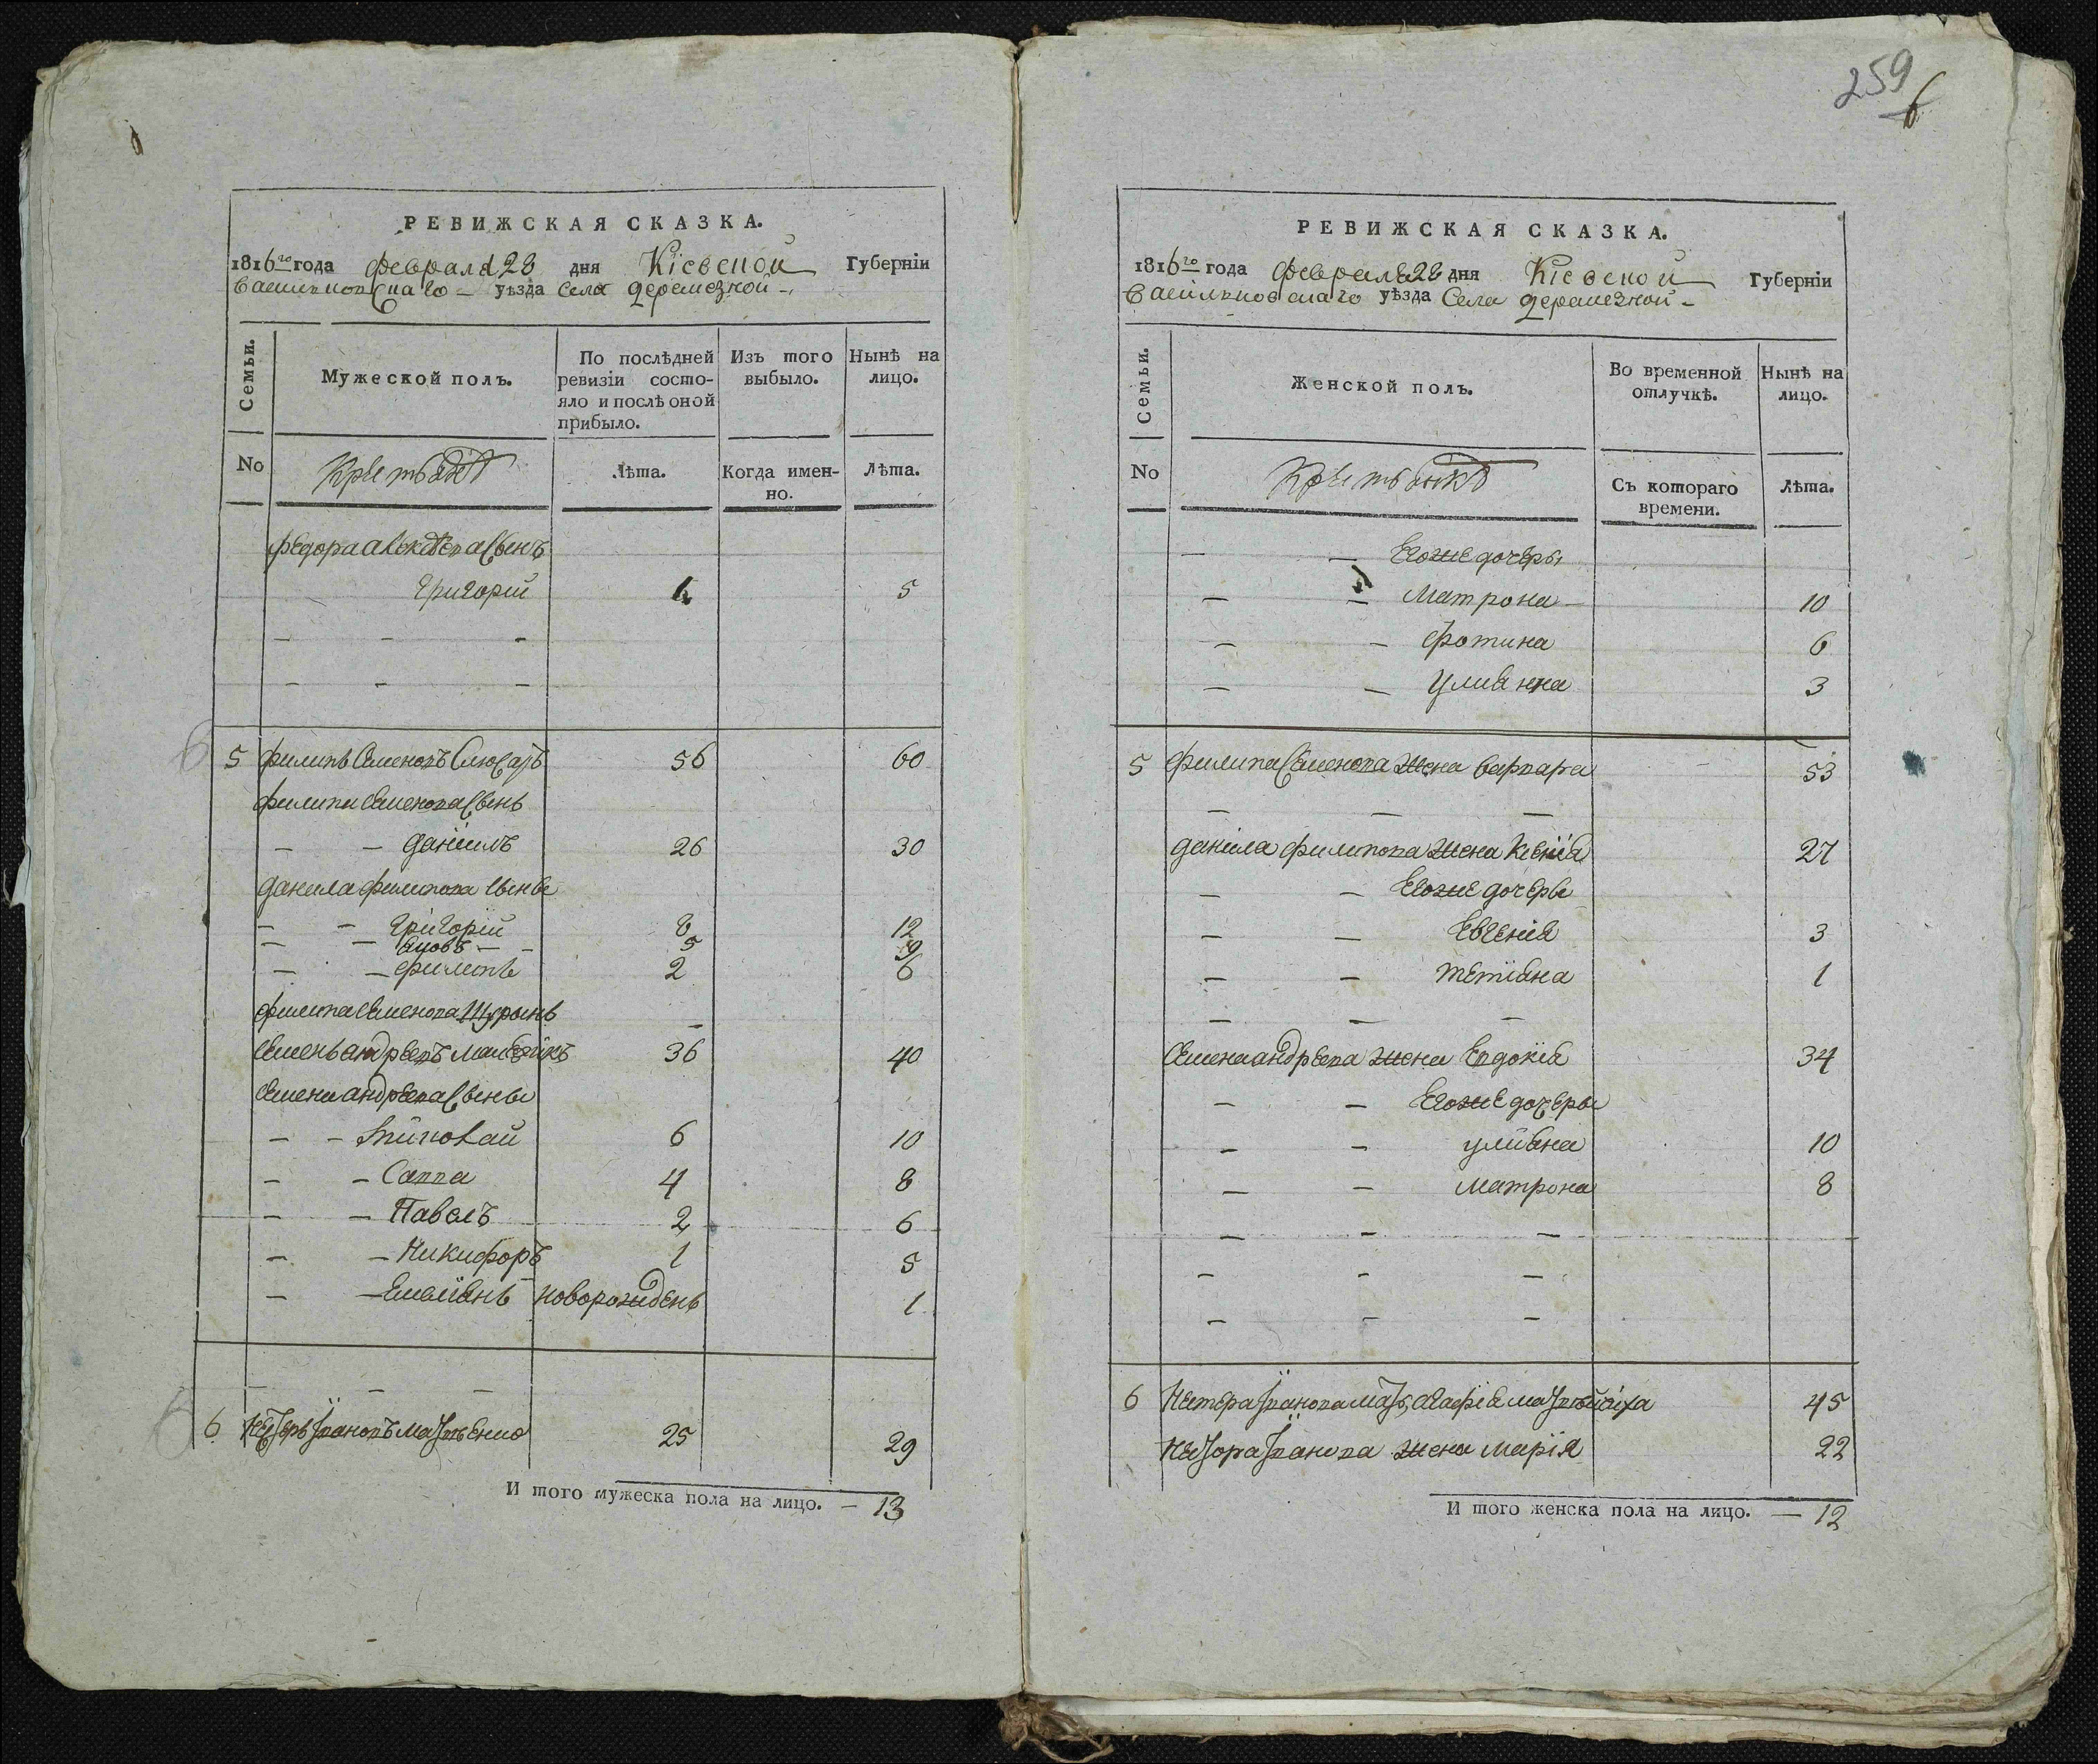 РЕВИЖСКАЯ СКАЗКА.
1816го года февраля 28 дня Кіевской Губерніи
Васильковскаго уѣзда Села Деремезной
Семьи.
Мужеской полъ.
По послѣдней ревизіи состояло и послѣ оной прибыло.
Изъ того выбыло.
Нынѣ на лицо.
No
Лѣта.
Когда именно.
Лѣта.
Федора Сынъ
Григорій 1 5
5 Филипъ Семеновъ Слюсаръ 56 60
Филипа Семенова Сынъ
Даніилъ 26 30
Данила Филипова Сыны
Григорій 8 12
Яковъ 5 9
Филипъ 2 6
Филипа Семенова Шуринъ
Семенъ Андреевъ 36 40
Семена Андреева Сыны
6 10
Савва 4 8
Павелъ 2 6
Никифоръ 1 5
Емелїянъ новорожденъ 1
6 Нестеръ Ивановъ Матвѣенко 25 29
И того мужеска пола на лицо. — 13
259
6
РЕВИЖСКАЯ СКАЗКА.
1816го года февраля 28 дня Кіевской Губерніи
Васильковскаго уѣзда Села Деремезной
Семьи.
Женской полъ.
Во временной отлучкѣ.
Нынѣ на лицо.
No
Съ котораго времени.
Лѣта.
Егоже дочеры
Матрона 10
Фотина 6
Улиянна 3
5 Филипа Семенова жена Варвара 53
Данила Филипова жена Ксенія 27
Егоже дочеры
Евгенія 3
Тетїяна 1
Семена Андреева жена Евдокія 34
Егоже дочеры
Улияна 10
Матрона 8
6 Нестера Иванова мать Агафїя 45
Нестора Иванова жена Марїя 22
И того женска пола на лицо. — 12